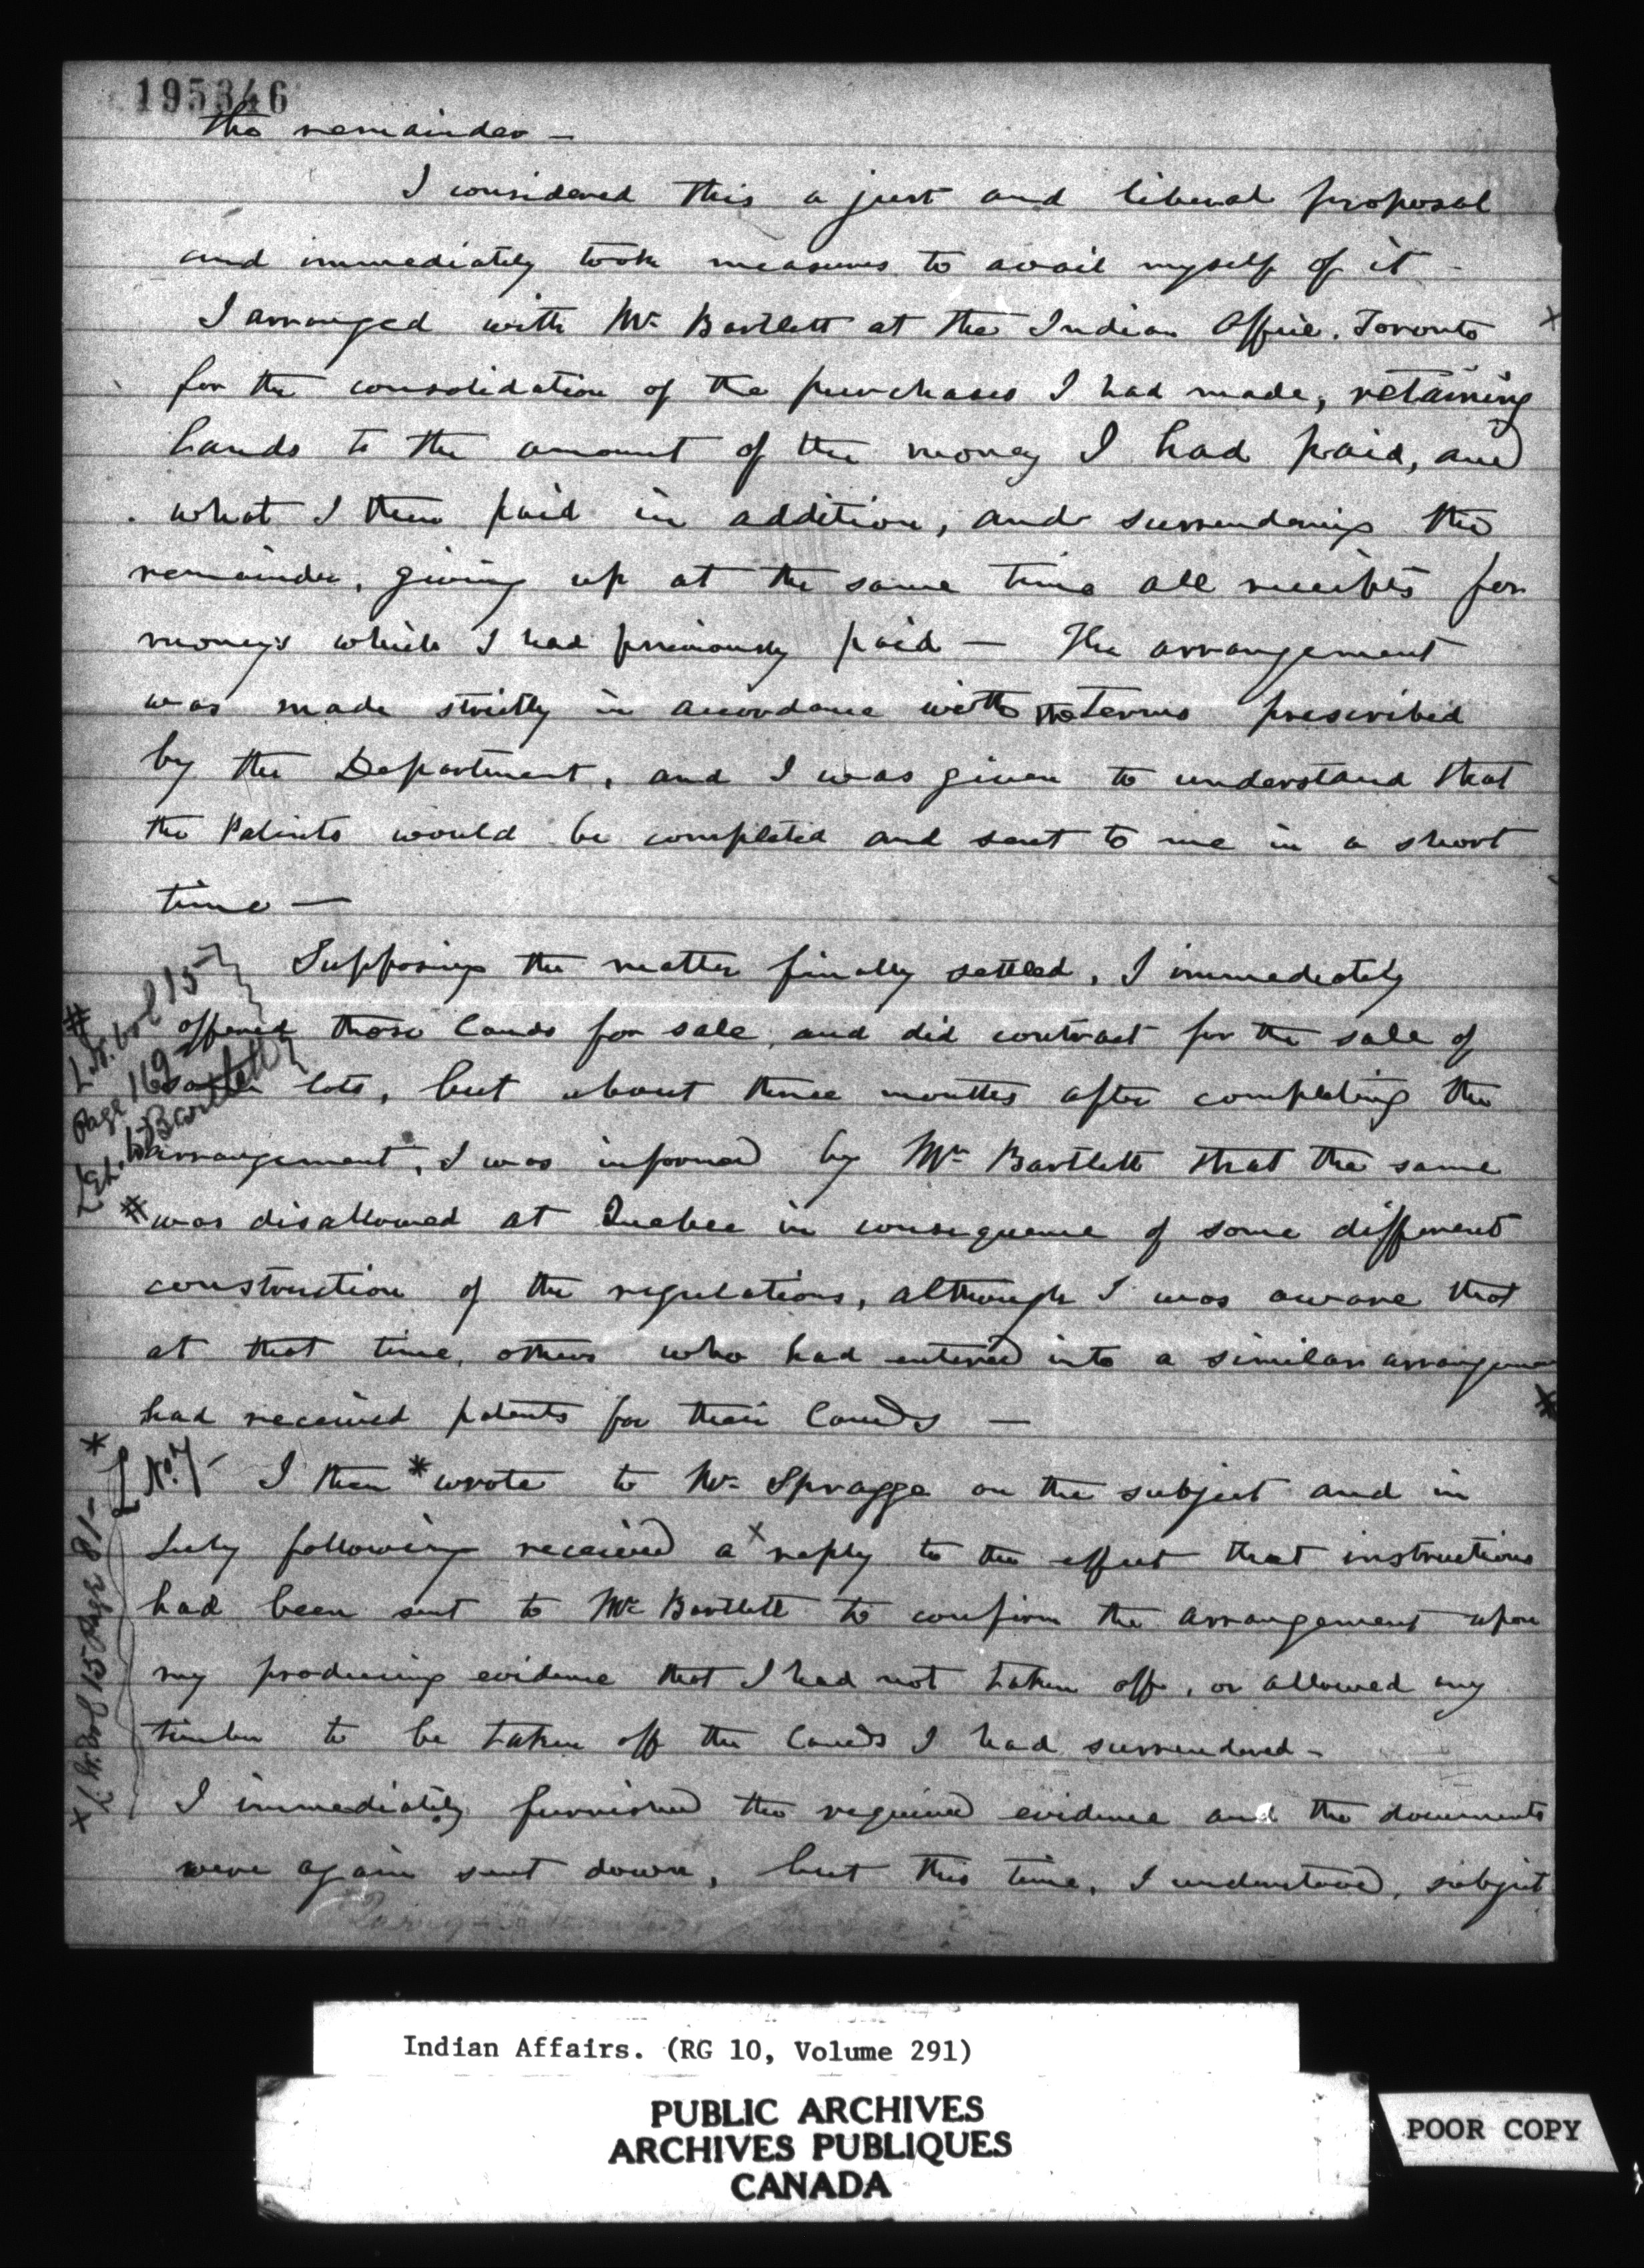 195346
the remainder —
I considered this a just and liberal proposal
and immediately took measures to avail myself of it -
I arranged with Mr Bartlett at the Indian Office. Toronto
for the consolidation of the purchases I had made, retaining
lands to the amount of the money I had paid, and
what I then paid in addition, and surrendering the
remainder, giving up at the same time all receipts for
money's which I had previously paid — The arrangement
was made strictly in accordance with the terms prescribed
by the Department, and I was given to understand that
the Patents would be completed and sent to me in a short
time —
Supposing the matter finally settled, I immediately
offered those lands for sale, and did contract for the sale of
lots, but about three months after completing the
arrangement, I was informed by Mr Bartlett that the same
# was disallowed at Quebec in consequence of some different
construction of the regulations, although I was aware that
at that time, others who had entered into a similar arrangement
had received patents for their lands —
I then * wrote to Mr Spragge on the subject and in
July following received a x reply to the effect that instructions
had been sent to Mr Bartlett to confirm the arrangement upon
my producing evidence that I had not taken off, or allowed any
timber to be taken off the lands I had surrendered -
I immediately furnished the required evidence and the documents
were again sent down, but this time, I understood, subject
# L.B. vol 15
Page 169
Let. to Bartlett
* L No. 7
x L.B. Vol 15 Page 81 -
Indian Affairs. (RG 10, Volume 291)
PUBLIC ARCHIVES
ARCHIVES PUBLIQUES
CANADA
POOR COPY